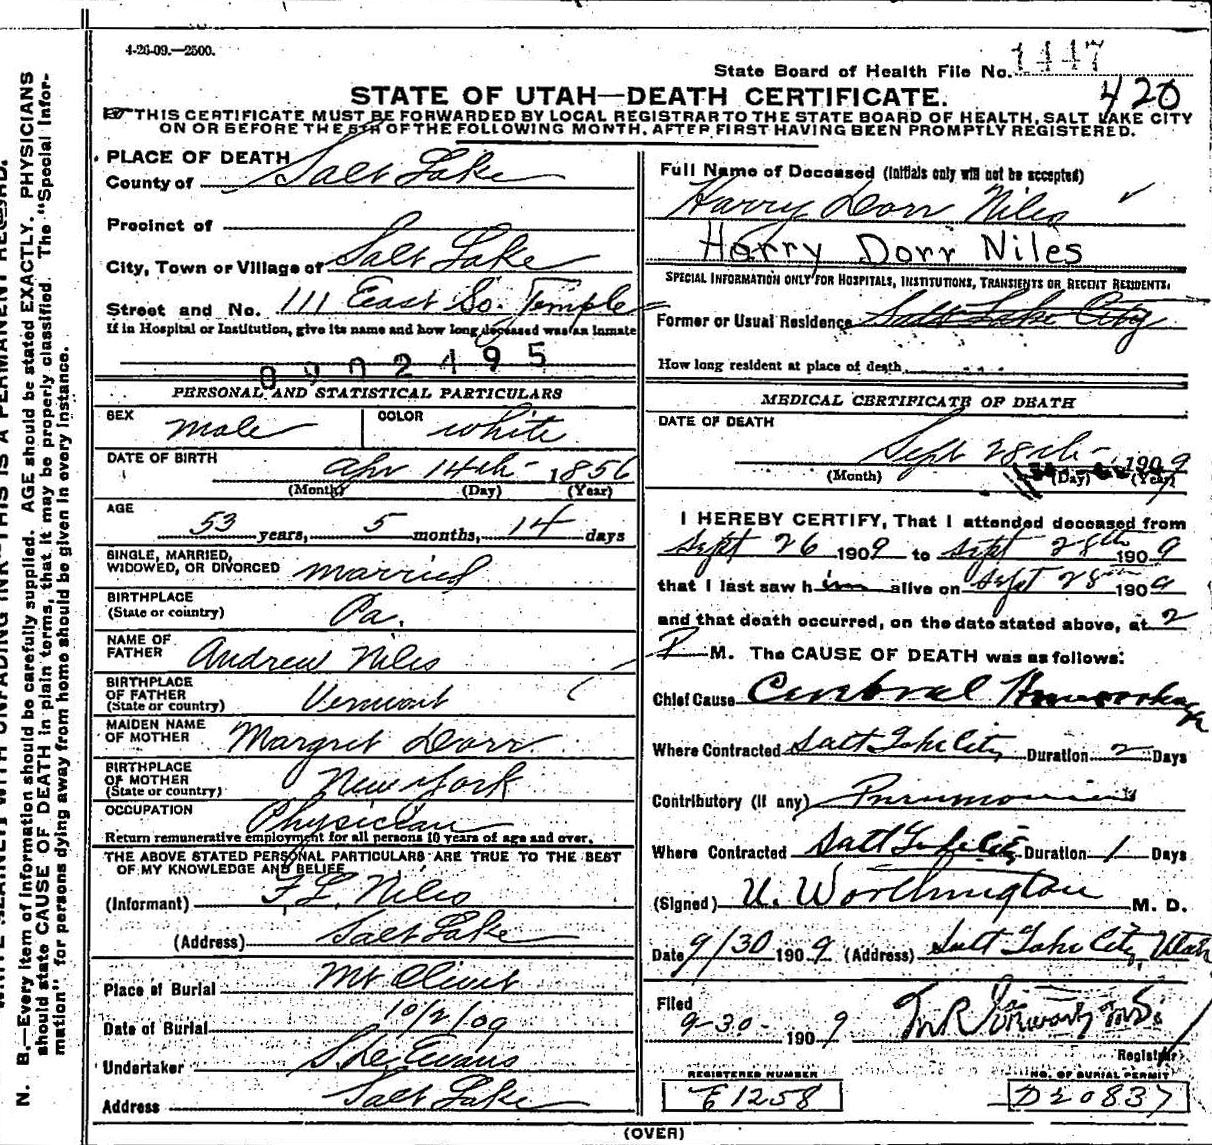 4-26-09.—2500.
State Board of Health File No. 1447
420
STATE OF UTAH—DEATH CERTIFICATE.
THIS CERTIFICATE MUST BE FORWARDED BY LOCAL REGISTRAR TO THE STATE BOARD OF HEALTH, SALT LAKE CITY
ON OR BEFORE THE 5TH OF THE FOLLOWING MONTH, AFTER FIRST HAVING BEEN PROMPTLY REGISTERED.
PLACE OF DEATH
County of Salt Lake
Precinct of
City, Town or Village of Salt Lake
Street and No. 111 East So. Temple
If in Hospital or Institution, give its name and how long deceased was an inmate
0902495
PERSONAL AND STATISTICAL PARTICULARS
SEX male COLOR white
DATE OF BIRTH Apr 14th 1856
(Month) (Day) (Year)
AGE
53 years, 5 months, 14 days
SINGLE, MARRIED,
WIDOWED, OR DIVORCED married
BIRTHPLACE
(State or country) Pa.
NAME OF
FATHER Andrew Niles
BIRTHPLACE
OF FATHER
(State or country) Vermont
MAIDEN NAME
OF MOTHER Margret Dorr
BIRTHPLACE
OF MOTHER
(State or country) New York
OCCUPATION Physician
Return remunerative employment for all persons 10 years of age and over.
THE ABOVE STATED PERSONAL PARTICULARS ARE TRUE TO THE BEST
OF MY KNOWLEDGE AND BELIEF
(Informant) F L Niles
(Address) Salt Lake
Place of Burial Mt Olivet
Date of Burial 10/2/09
Undertaker Evans
Address Salt Lake
Full Name of Deceased (Initials only will not be accepted)
Harry Dorr Niles
Harry Dorr Niles
SPECIAL INFORMATION ONLY FOR HOSPITALS, INSTITUTIONS, TRANSIENTS OR RECENT RESIDENTS.
Former or Usual Residence Salt Lake City
How long resident at place of death
MEDICAL CERTIFICATE OF DEATH
DATE OF DEATH
Sept 28th 1909
(Month) (Day) (Year)
I HEREBY CERTIFY, That I attended deceased from
Sept 26 1909 to Sept 28th 1909
that I last saw him alive on Sept 28th 1909
and that death occurred, on the date stated above, at 2
P M. The CAUSE OF DEATH was as follows:
Chief Cause Cerebral Hemorrhage
Where Contracted Salt Lake City Duration 2 Days
Contributory (if any) Pneumonia
Where Contracted Salt Lake City Duration 1 Days
(Signed) U. Worthington M. D.
Date 9/30 1909 (Address) Salt Lake City, Utah
Filed
9-30- 1909
Registrar
REGISTERED NUMBER
E1258
NO. OF BURIAL PERMIT
D20837
(OVER)
N. B.—Every item of information should be carefully supplied. AGE should be stated EXACTLY. PHYSICIANS
should state CAUSE OF DEATH in plain terms, that it may be properly classified. The "Special Infor-
mation" for persons dying away from home should be given in every instance.